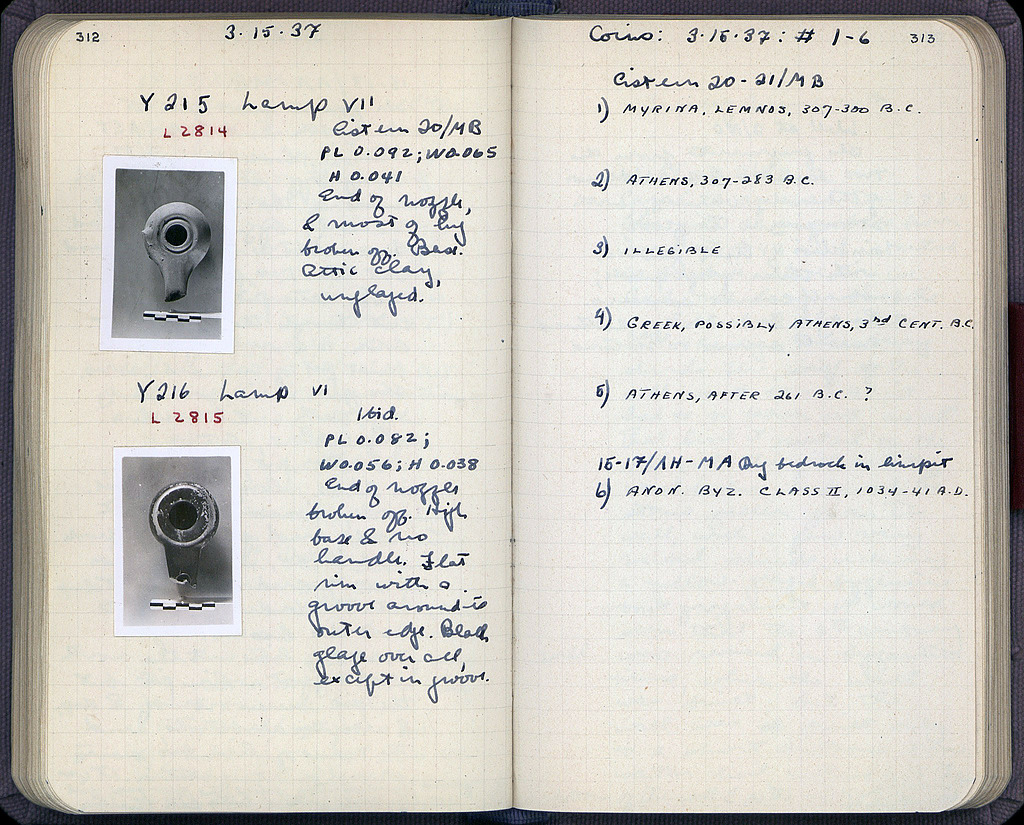 312
3·15·37
Y 215 Lamp VII
L 2814
Cistern 20/MB
PL 0.092; W 0.065
H 0.041
End of nozzle,
& most of lug
broken off.
Attic clay,
unglazed.
Y 216 Lamp VI
L 2815
Ibid.
PL 0.082;
W 0.056; H 0.038
End of nozzle
broken off. High
base & no
handle. Flat
rim with a
groove around its
outer edge. Black
glaze over all,
except in groove.
Coins: 3·15·37: # 1-6
313
Cistern 20-21/MB
1) MYRINA, LEMNOS, 307-300 B.C.
2) ATHENS, 307-283 B.C.
3) ILLEGIBLE
4) GREEK, POSSIBLY ATHENS, 3rd CENT. B.C.
5) ATHENS, AFTER 261 B.C. ?
15-17/ΛH-MA Dug bedrock in limepit
6) ANON. BYZ. CLASS II, 1034-41 A.D.